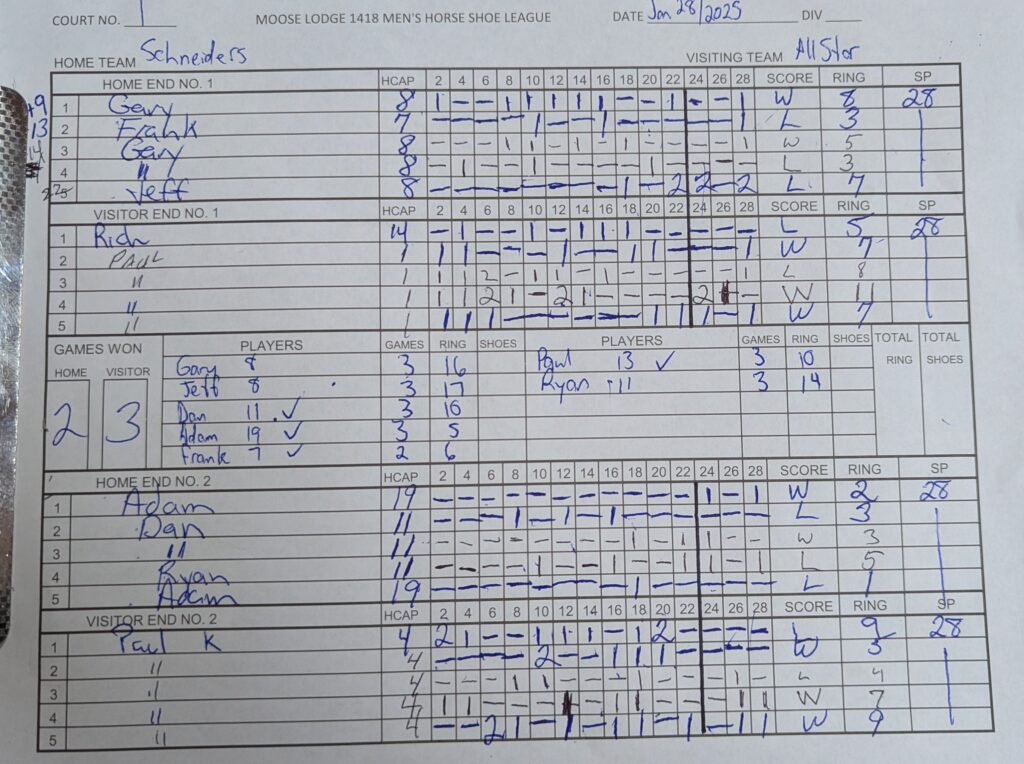 COURT NO. 1 MOOSE LODGE 1418 MEN'S HORSE SHOE LEAGUE DATE Jan 28/2025 DIV
HOME TEAM Schneiders VISITING TEAM All Star
HOME END NO. 1 HCAP 2 4 6 8 10 12 14 16 18 20 22 24 26 28 SCORE RING SP
+9 1 Gary 8 1 - - 1 1 1 1 1 - - 1 - - 1 W 8 28
13 2 Frank 7 - - - - 1 - - 1 - - - - - 1 L 3
14 3 Gary 8 - - - 1 1 - 1 - 1 - - - - 1 W 5
4 " 8 - 1 - - 1 - - - - 1 - - - - L 3
5 Jeff 8 - - - - - - - - 1 - 2 2 - 2 L 7
VISITOR END NO. 1 HCAP 2 4 6 8 10 12 14 16 18 20 22 24 26 28 SCORE RING SP
1 Rich 14 - 1 - - 1 - 1 1 1 - - - - - L 5 28
2 PAUL 1 1 1 - - - 1 - - 1 1 - - - 1 W 7
3 " 1 1 1 2 - 1 1 - 1 - - - - - 1 L 8
4 " 1 1 1 2 1 - 2 1 - - - - 2 - W 11
5 " 1 1 1 1 - - - - - - 1 1 1 - 1 W 7
GAMES WON PLAYERS GAMES RING SHOES PLAYERS GAMES RING SHOES TOTAL TOTAL
HOME VISITOR RING SHOES
2 3
Gary 8 3 16 Paul 13 ✓ 3 10
Jeff 8 3 17 Ryan 11 3 14
Dan 11 ✓ 3 10
Adam 19 ✓ 3 5
Frank 7 ✓ 2 6
HOME END NO. 2 HCAP 2 4 6 8 10 12 14 16 18 20 22 24 26 28 SCORE RING SP
1 Adam 19 - - - - - - - - - - - 1 - 1 W 2 28
2 Dan 11 - - - 1 - 1 - 1 - - - - - - L 3
3 " 11 - - - - - - - - 1 - 1 1 - - W 3
4 Ryan 11 - - - - 1 - - 1 - - 1 1 - 1 L 5
5 Adam 19 - - - - - - - - 1 - - - - - L 1
VISITOR END NO. 2 HCAP 2 4 6 8 10 12 14 16 18 20 22 24 26 28 SCORE RING SP
1 Paul K 4 2 1 - - 1 1 1 - 1 2 - - - - L 9 28
2 " 4 - - - - 2 - - 1 1 1 - - - - W 3
3 " 4 - - - 1 1 - - - 1 - - - 1 - L 4
4 " 4 1 1 - - - 1 - 1 1 - - - 1 1 W 7
5 " 4 - - 2 1 - 1 - 1 1 - 1 - 1 1 W 9